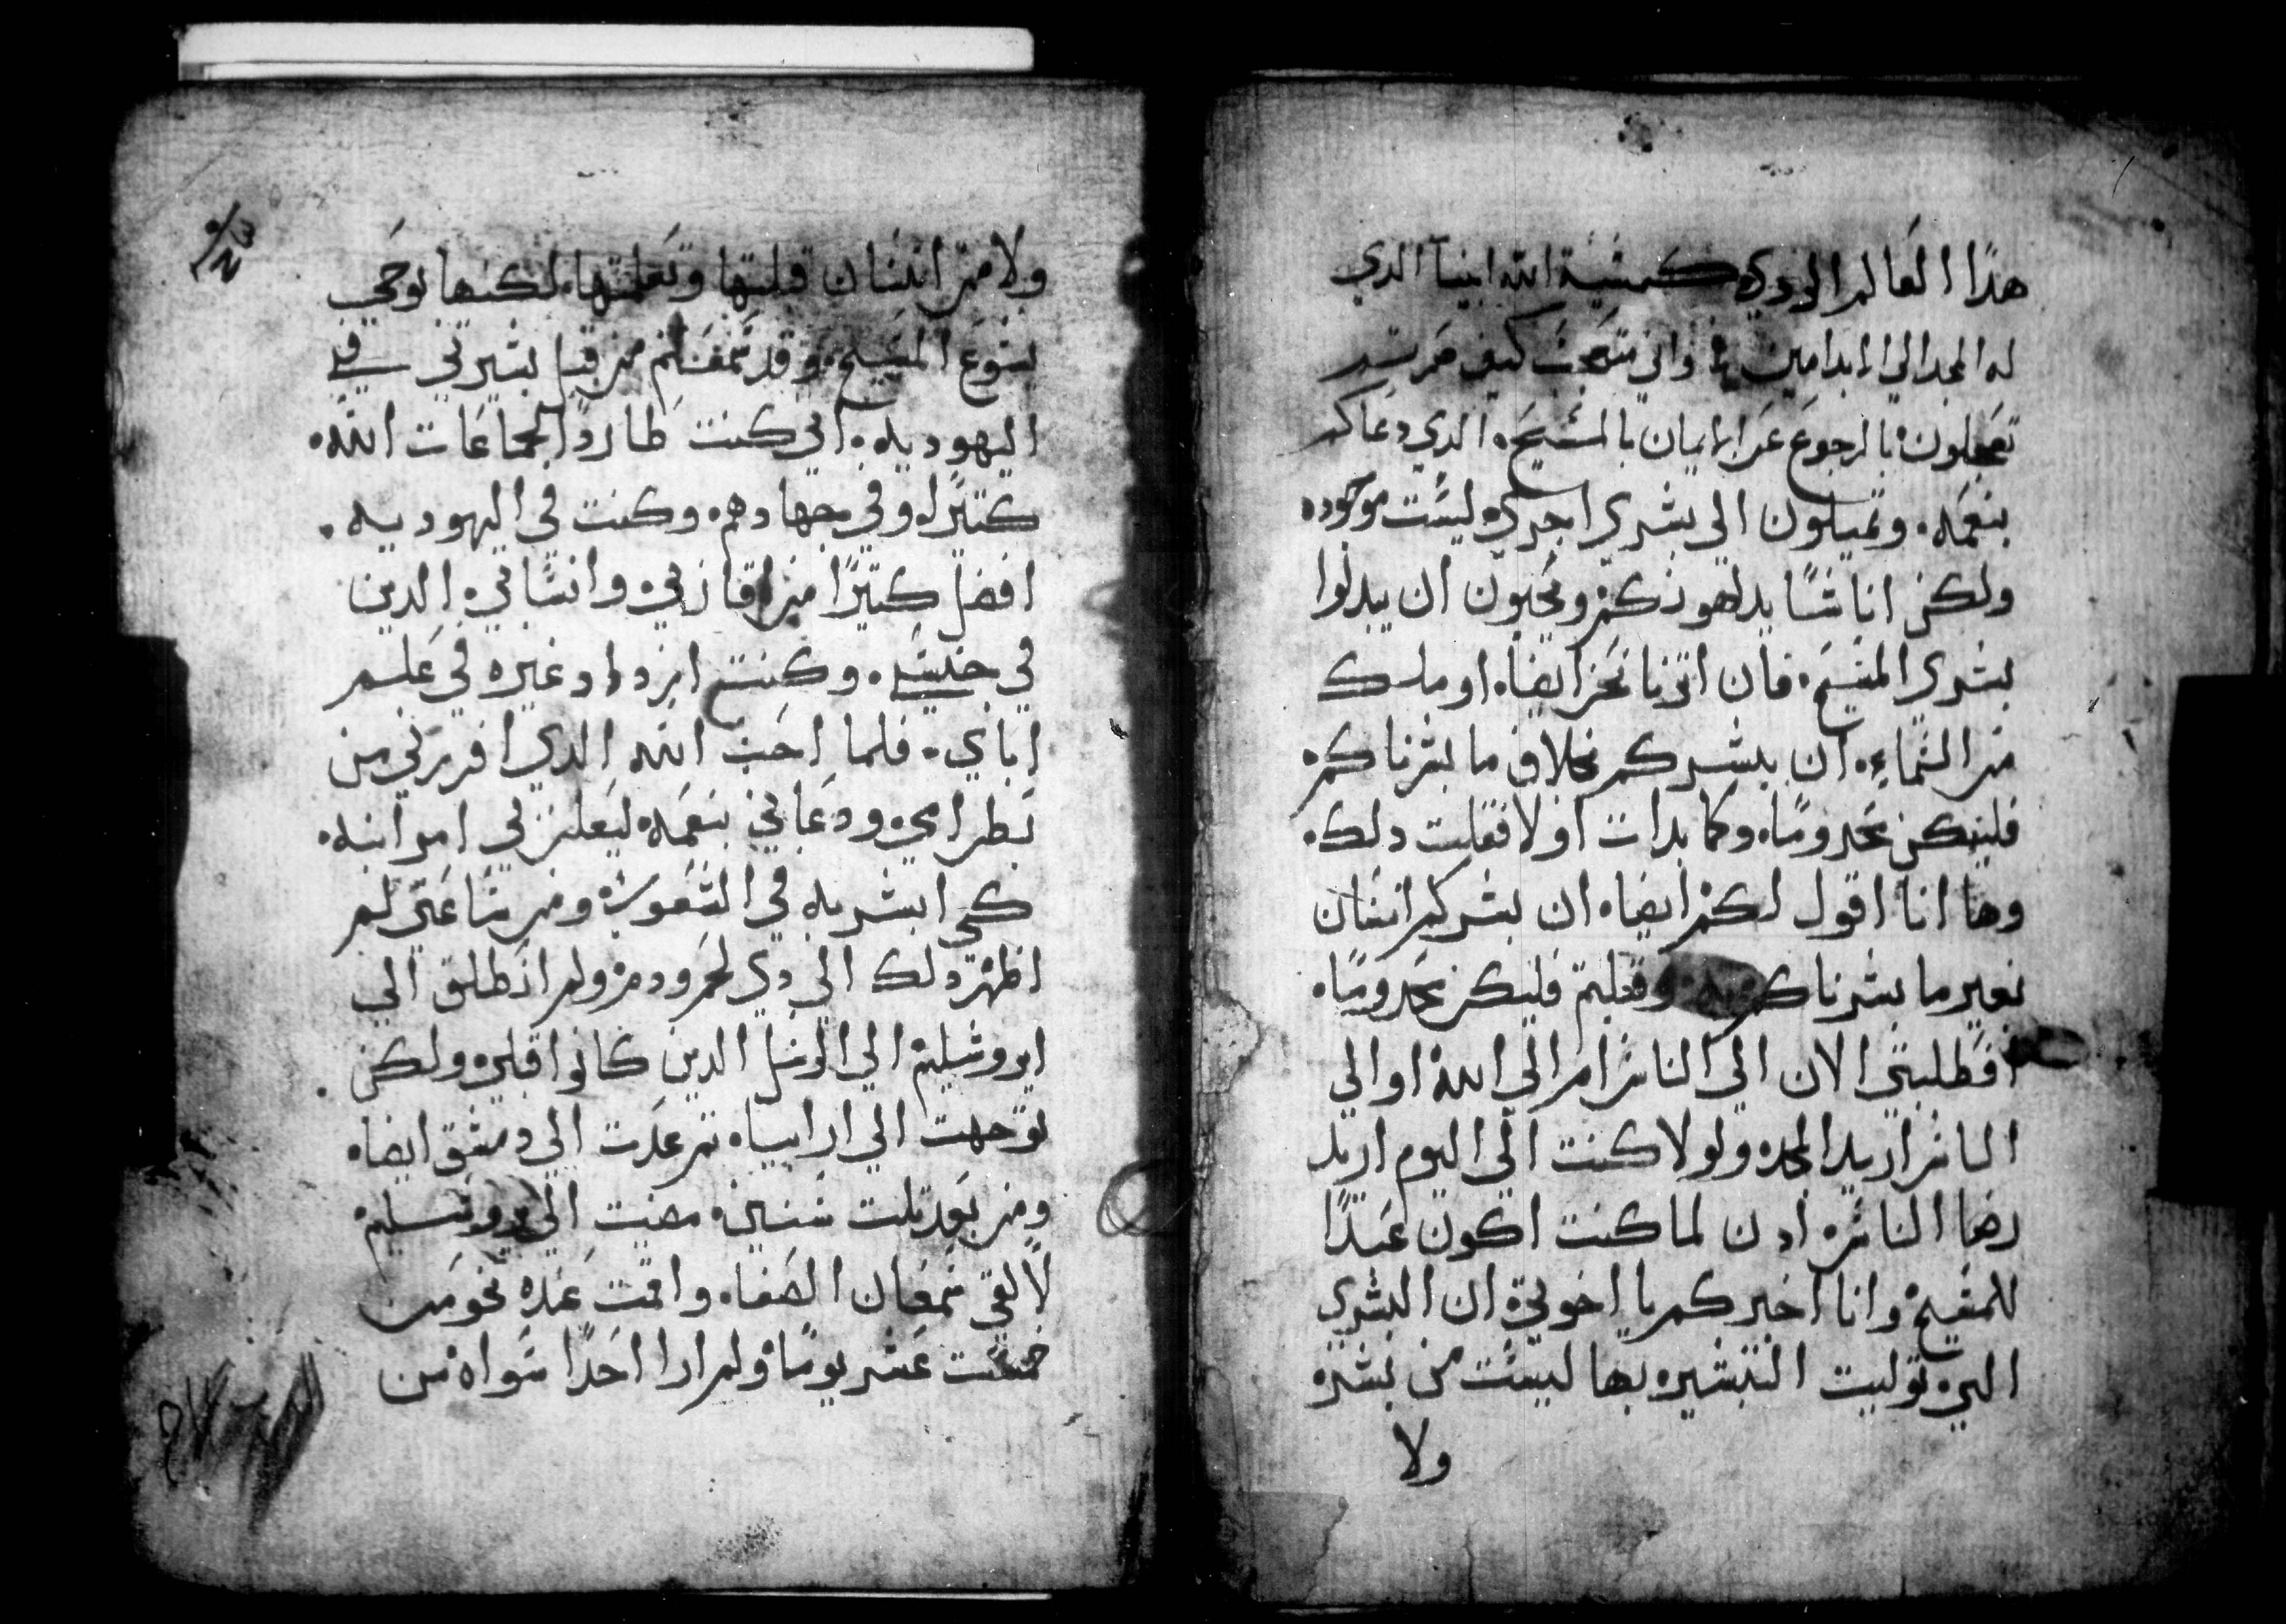 هدا العالم الردي كمشية الله ابينا الدي
له المجد الي الابد امين واني متعجب كيف صرتم
تعجلون بالرجوع عن الايمان بالمسيح الدي دعاكم
بنعمه وتميلون الي بشري اخري ليست موجوده
ولكن اناسًا يدلهونكم ويحبون ان يبدلوا
بشري المسيح فان اتينا نحن ايضا او ملك
من السماء ان يبشركم بخلاف ما بشرناكم
فليكن محرومًا وكما بدات اولا فقلت دلك
وها انا اقول لكم ايضا ان بشركم انسان
بغير ما بشرناكم به وقبلتم فليكن محرومًا
افطلبتي الان الي الناس ام الي الله او الي
الناس اريد المجد ولولا كنت الي اليوم اريد
رضا الناس ادن لما كنت اكون عبدًا
للمسيح وانا اخبركم يا اخوتي ان البشري
التي توليت التبشير بها ليست من بشر
ولا
ولا من انسان قبلتها وتعلمتها لكنها بوحي
يسوع المسيح وقد سمعتم من قبل بسيرتي في
اليهوديه اني كنت طاردًا لجماعات الله
كتيرا وفي جهادهم وكنت في اليهوديه
افضل كتيرًا من اقراني واسناني الدين
في جنسي وكنت ازداد غيره في علم
اباي فلما احب الله الدي افرزني من
بطن امي ودعاني بنعمه ليعلن لي امر ابنه
كي ابشر به في الشعوب ومن ساعتي لم
اظهر دلك الي دي لحم ودم ولم انطلق الي
ايروشليم الي الرسل الدين كانوا قبلي ولكن
توجهت الي ارابيا تم عدت الي دمشق ايضا
ومن بعد تلت سنين مضيت الي يروشليم
لالقي سمعان الصفا واقمت عنده نحو من
خمست عشر يومًا ولم ارا احدًا سواه من